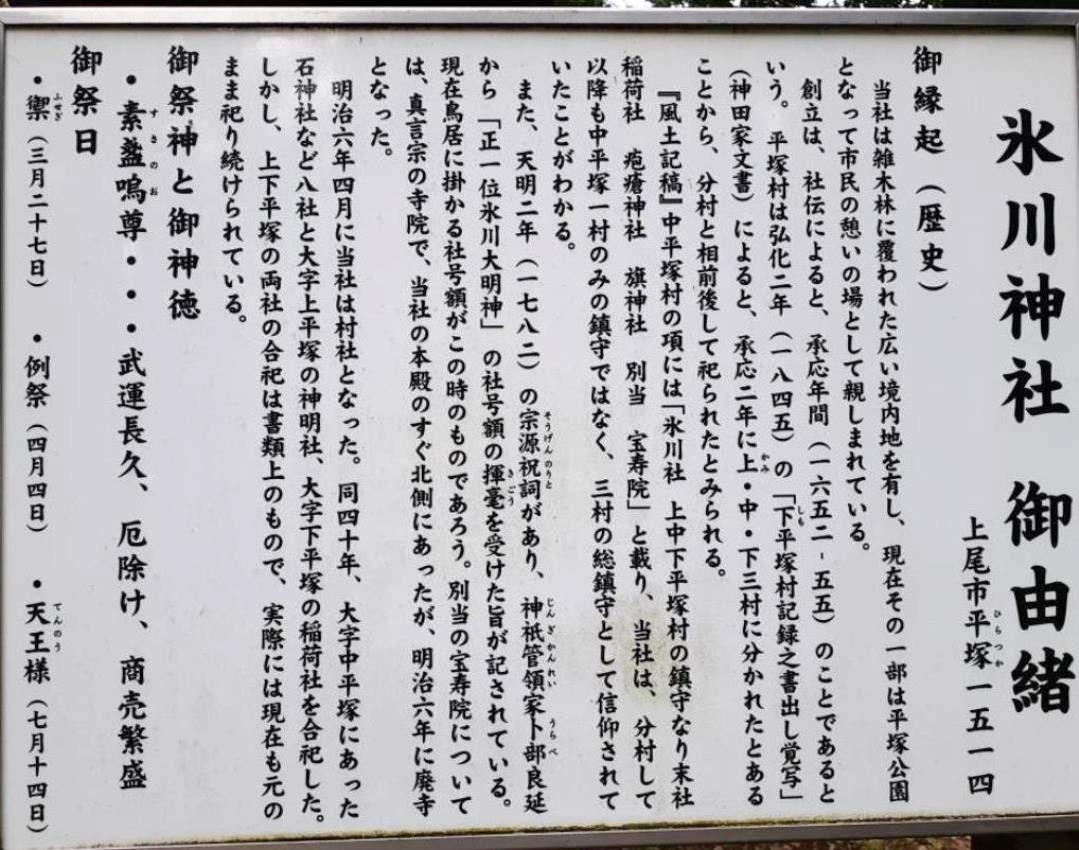 氷川神社 御由緒
上尾市平塚一五一四
御縁起（歴史）
当社は雑木林に覆われた広い境内地を有し、現在その一部は平塚公園
となって市民の憩いの場として親しまれている。
創立は、社伝によると、承応年間（一六五二-五五）のことであると
いう。平塚村は弘化二年（一八四五）の「下平塚村記録之書出し覚写」
（神田家文書）によると、承応二年に上・中・下三村に分かれたとある
ことから、分村と相前後して祀られたとみられる。
『風土記稿』中平塚村の項には「氷川社 上中下平塚村の鎮守なり末社
稲荷社 疱瘡神社 旗神社 別当 宝寿院」と載り、当社は、分村して
以降も中平塚一村のみの鎮守ではなく、三村の総鎮守として信仰されて
いたことがわかる。
また、天明二年（一七八二）の宗源祝詞があり、神祇管領家卜部良延
から「正一位氷川大明神」の社号額の揮毫を受けた旨が記されている。
現在鳥居に掛かる社号額がこの時のものであろう。別当の宝寿院について
は、真言宗の寺院で、当社の本殿のすぐ北側にあったが、明治六年に廃寺
となった。
明治六年四月に当社は村社となった。同四十年、大字中平塚にあった
石神社など八社と大字上平塚の神明社、大字下平塚の稲荷社を合祀した。
しかし、上下平塚の両社の合祀は書類上のもので、実際には現在も元の
まま祀り続けられている。
御祭神と御神徳
・素盞嗚尊・・・武運長久、厄除け、商売繁盛
御祭日
・禦（三月二十七日） ・例祭（四月四日） ・天王様（七月十四日）